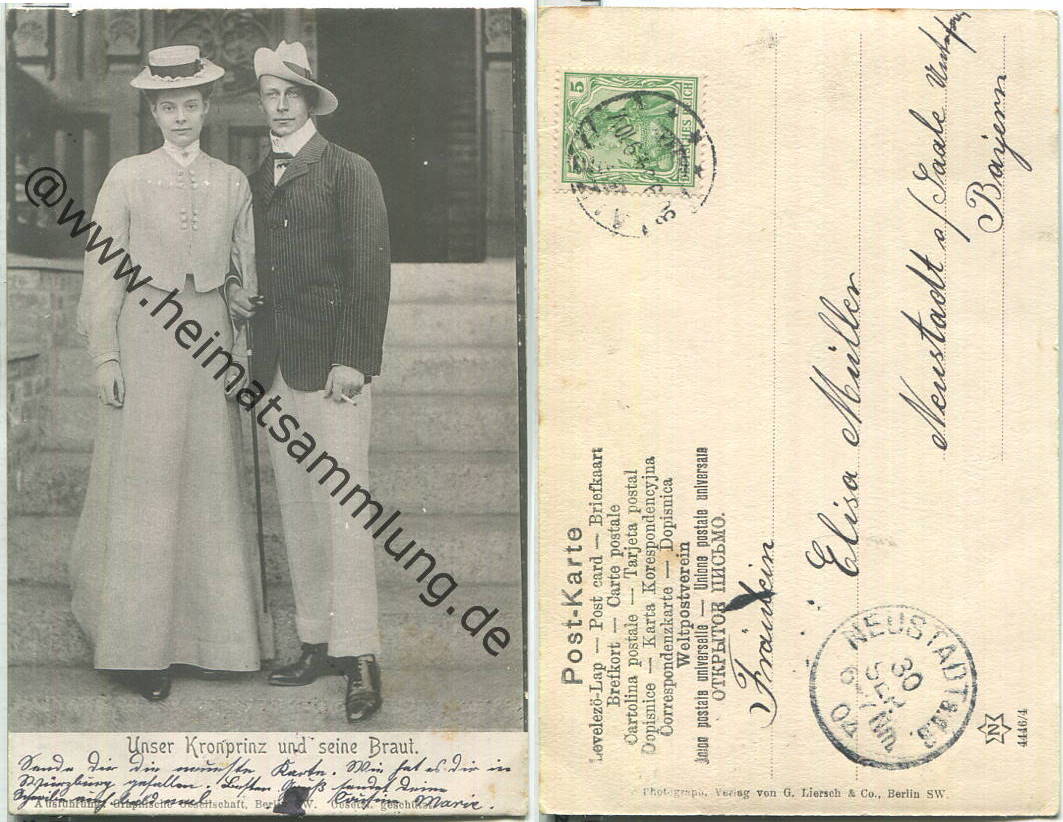 Unser Kronprinz und seine Braut.
Sende dir die neuste Karte. Wie hat es dir in
Würzburg gefallen. Besten Gruß sendet deine
Marie.
Ausführung: Graphische Gesellschaft, Berlin SW. Gesetzl. geschützt.
@www.heimatsammlung.de
5
Post-Karte
Levelező-Lap — Post card — Briefkaart
Brefkort — Carte postale
Cartolina postale — Tarjeta postal
Dopisnice — Karta Korespondencyjna
Correspondenzkarte — Dopisnica
Weltpostverein
Union postale universelle — Unione postale universale
ОТКРЫТОЕ ПИСЬМО.
Fräulein
Elisa Müller
Neustadt a/ Saale
Bayern
NEUSTADT a.d.S.
30
SEP.
N
4446/4
Photograph. Verlag von G. Liersch & Co., Berlin SW.